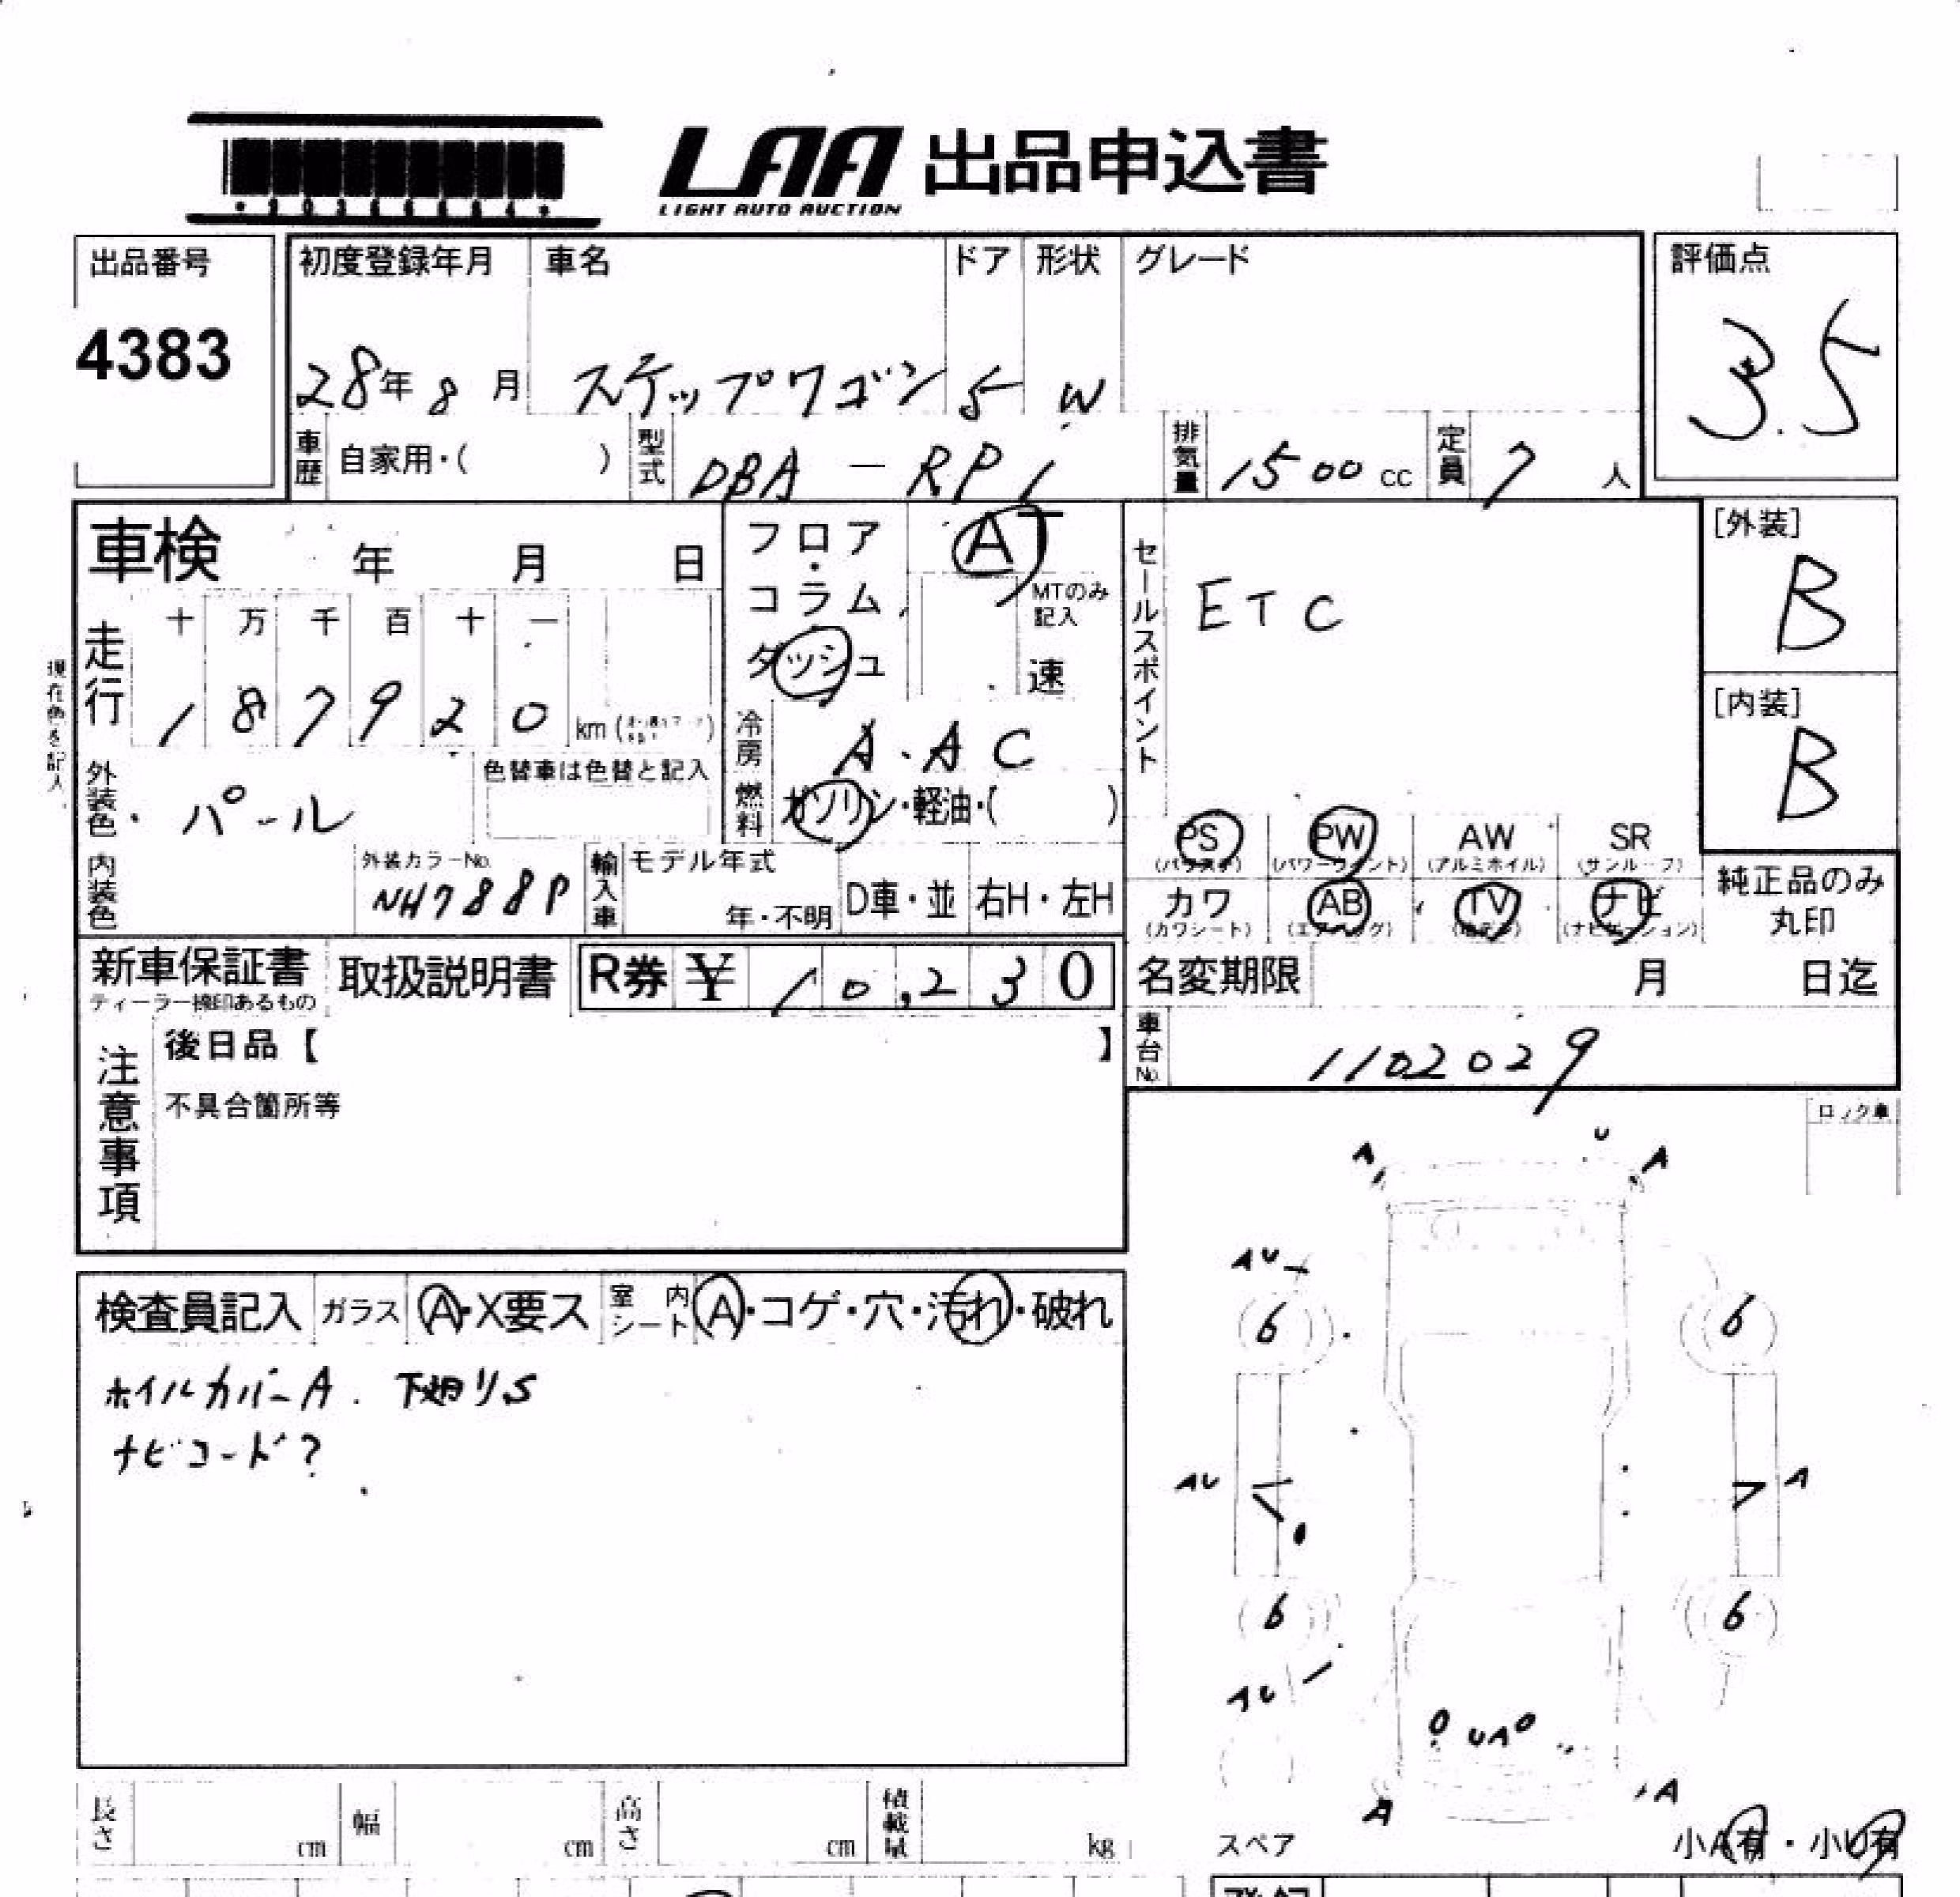 LAA 出品申込書
LIGHT AUTO AUCTION
出品番号
4383
初度登録年月
28年8月
車名
ステップワゴン
ドア
5
形状
W
グレード
評価点
3.5
車歴 自家用・( )
型式 DBA-RP1
排気量 1500cc
定員 7人
車検 年 月 日
走行 十 万 千 百 十 一
187920 km
現在色を記入
外装色・パール
色替車は色替と記入
内装色
外装カラーNo.
NH788P
フロア・コラム
ダッシュ
AT
MTのみ記入
速
冷房 A.AC
燃料 ガソリン・軽油・( )
輸入車 モデル年式
年・不明
D車・並
右H・左H
セールスポイント
ETC
[外装]
B
[内装]
B
PS PW AW SR
(パワステ) (パワーウィンド) (アルミホイル) (サンルーフ)
カワ AB TV ナビ
(カワシート) (エアバッグ) (ナビゲーション)
純正品のみ
丸印
新車保証書
ディーラー捺印あるもの
取扱説明書
R券 ¥10,230
名変期限 月 日迄
車台No. 1102029
注意事項
後日品【 】
不具合箇所等
ロック車
検査員記入 ガラス A・X要ス 室内シート A・コゲ・穴・汚れ・破れ
ホイルカバーA. 下廻りS
ナビコード?
A U A
AU
6 6
AU A
6 6
AU
UA
A A
長さ cm 幅 cm 高さ cm 積載量 kg
スペア
小A有・小U有